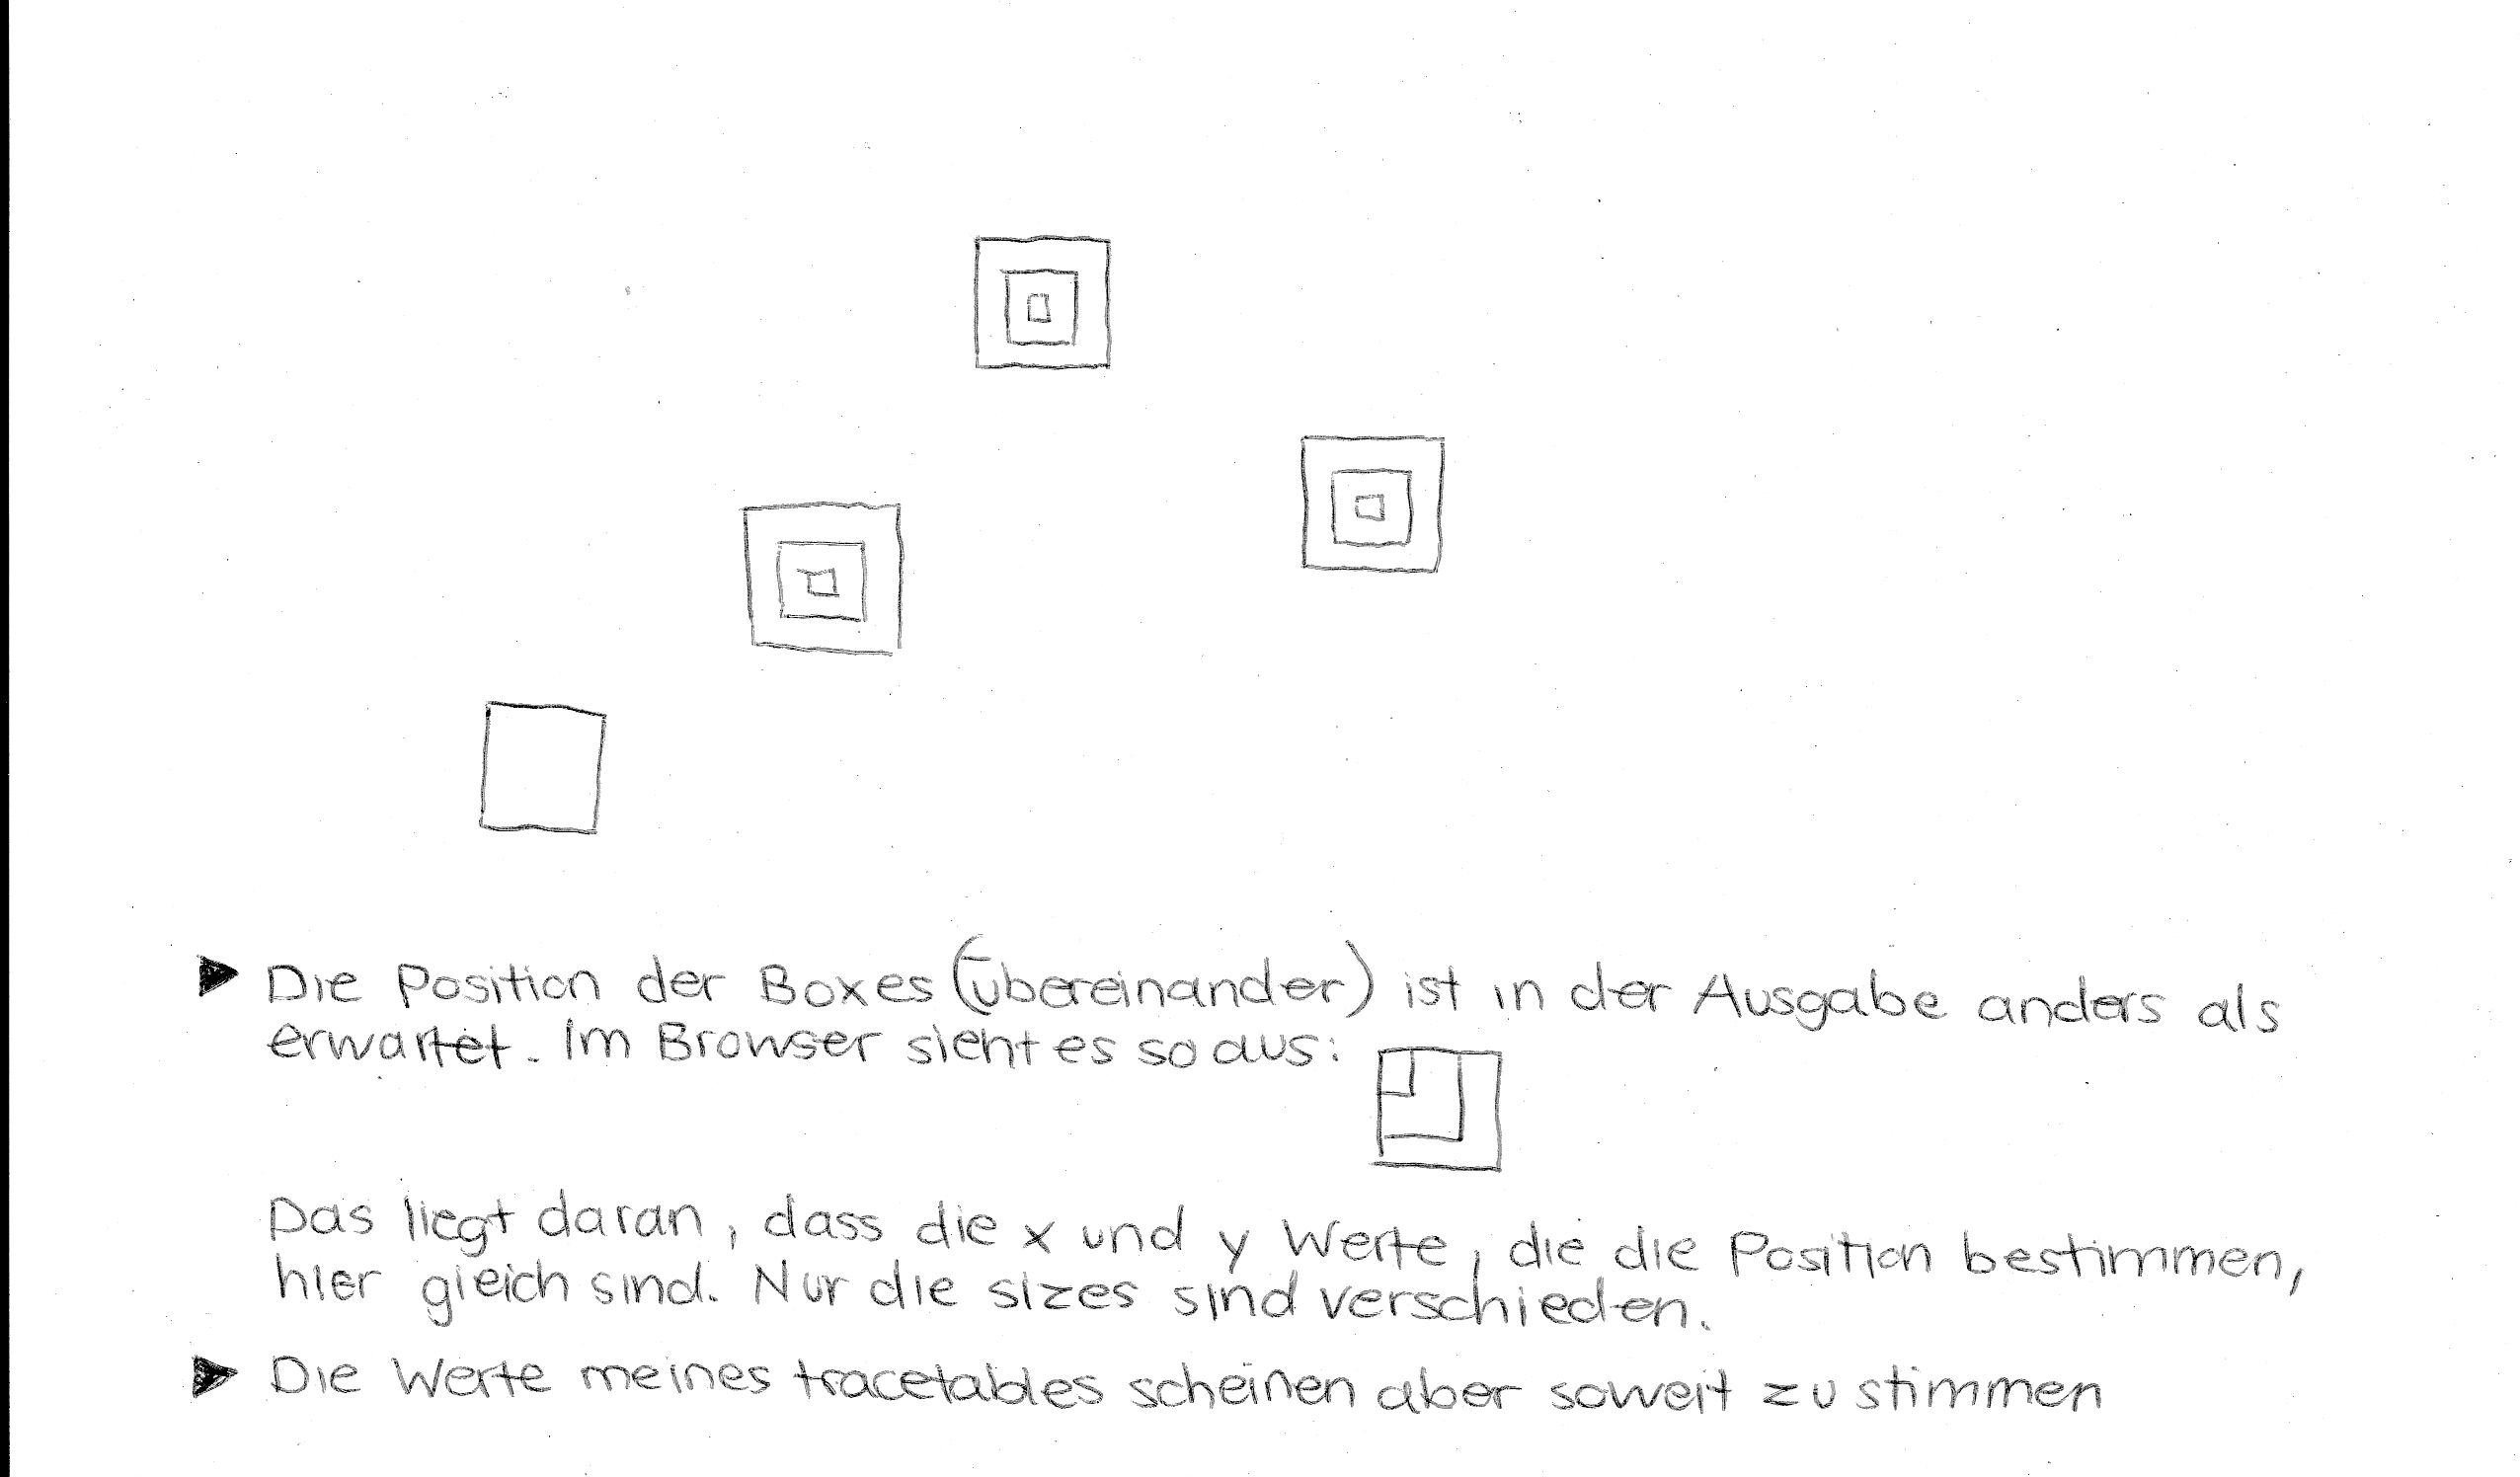 ▶ Die Position der Boxes (übereinander) ist in der Ausgabe anders als
erwartet. Im Browser sieht es so aus:
Das liegt daran, dass die x und y Werte, die die Position bestimmen,
hier gleich sind. Nur die sizes sind verschieden.
▶ Die Werte meines tracetables scheinen aber soweit zu stimmen